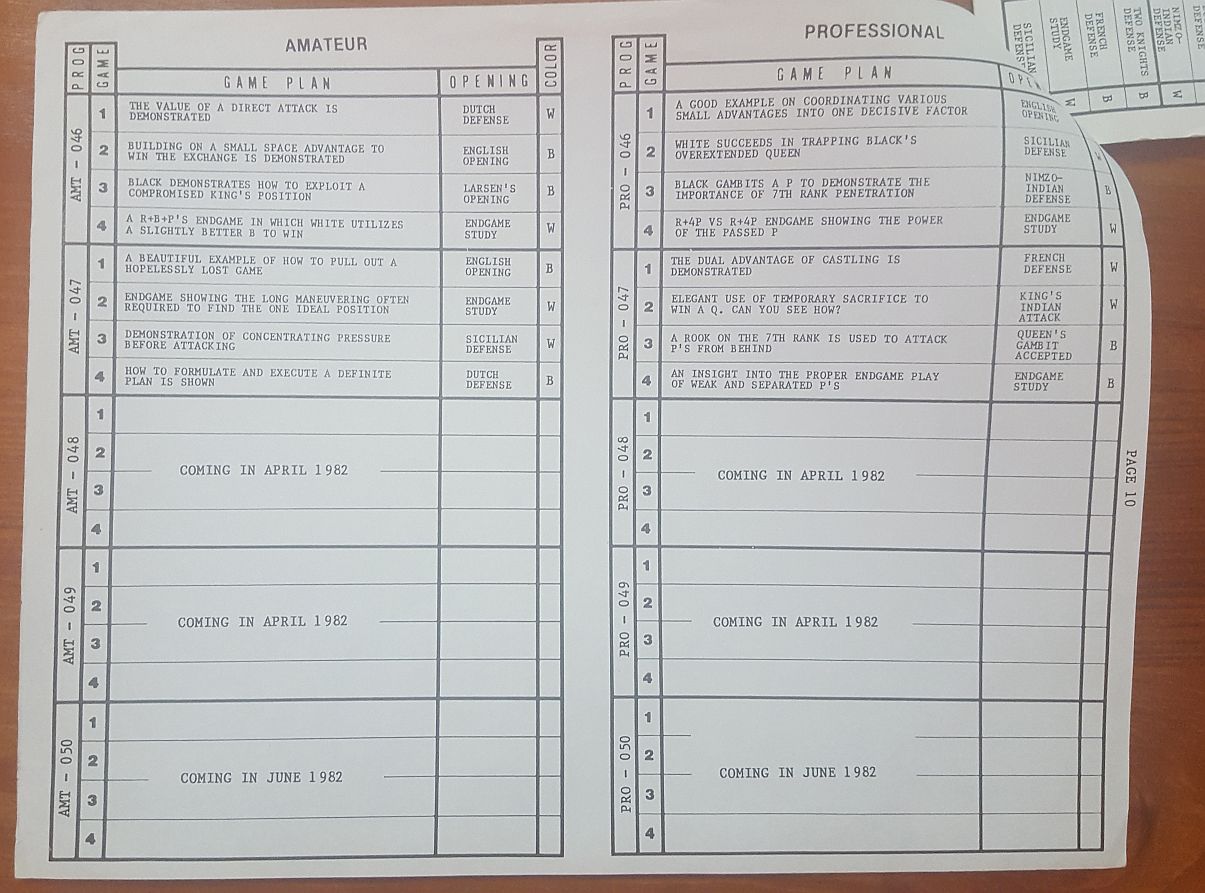 AMATEUR
PROG
GAME
GAME PLAN
OPENING
COLOR
AMT - 046
1
THE VALUE OF A DIRECT ATTACK IS
DEMONSTRATED
DUTCH
DEFENSE
W
2
BUILDING ON A SMALL SPACE ADVANTAGE TO
WIN THE EXCHANGE IS DEMONSTRATED
ENGLISH
OPENING
B
3
BLACK DEMONSTRATES HOW TO EXPLOIT A
COMPROMISED KING'S POSITION
LARSEN'S
OPENING
B
4
A R+B+P'S ENDGAME IN WHICH WHITE UTILIZES
A SLIGHTLY BETTER B TO WIN
ENDGAME
STUDY
W
AMT - 047
1
A BEAUTIFUL EXAMPLE OF HOW TO PULL OUT A
HOPELESSLY LOST GAME
ENGLISH
OPENING
B
2
ENDGAME SHOWING THE LONG MANEUVERING OFTEN
REQUIRED TO FIND THE ONE IDEAL POSITION
ENDGAME
STUDY
W
3
DEMONSTRATION OF CONCENTRATING PRESSURE
BEFORE ATTACKING
SICILIAN
DEFENSE
W
4
HOW TO FORMULATE AND EXECUTE A DEFINITE
PLAN IS SHOWN
DUTCH
DEFENSE
B
AMT - 048
1
2
3
4
COMING IN APRIL 1982
AMT - 049
1
2
3
4
COMING IN APRIL 1982
AMT - 050
1
2
3
4
COMING IN JUNE 1982
PROFESSIONAL
PROG
GAME
GAME PLAN
PRO - 046
1
A GOOD EXAMPLE ON COORDINATING VARIOUS
SMALL ADVANTAGES INTO ONE DECISIVE FACTOR
ENGLISH
OPENING
2
WHITE SUCCEEDS IN TRAPPING BLACK'S
OVEREXTENDED QUEEN
SICILIAN
DEFENSE
W
3
BLACK GAMBITS A P TO DEMONSTRATE THE
IMPORTANCE OF 7TH RANK PENETRATION
NIMZO-
INDIAN
DEFENSE
B
4
R+4P VS R+4P ENDGAME SHOWING THE POWER
OF THE PASSED P
ENDGAME
STUDY
W
PRO - 047
1
THE DUAL ADVANTAGE OF CASTLING IS
DEMONSTRATED
FRENCH
DEFENSE
W
2
ELEGANT USE OF TEMPORARY SACRIFICE TO
WIN A Q. CAN YOU SEE HOW?
KING'S
INDIAN
ATTACK
W
3
A ROOK ON THE 7TH RANK IS USED TO ATTACK
P'S FROM BEHIND
QUEEN'S
GAMBIT
ACCEPTED
B
4
AN INSIGHT INTO THE PROPER ENDGAME PLAY
OF WEAK AND SEPARATED P'S
ENDGAME
STUDY
B
PRO - 048
1
2
3
4
COMING IN APRIL 1982
PRO - 049
1
2
3
4
COMING IN APRIL 1982
PRO - 050
1
2
3
4
COMING IN JUNE 1982
PAGE 10
SICILIAN
ENDGAME
STUDY
W
FRENCH
DEFENSE
B
TWO KNIGHTS
DEFENSE
B
NIMZO-
INDIAN
DEFENSE
W
DEFENSE